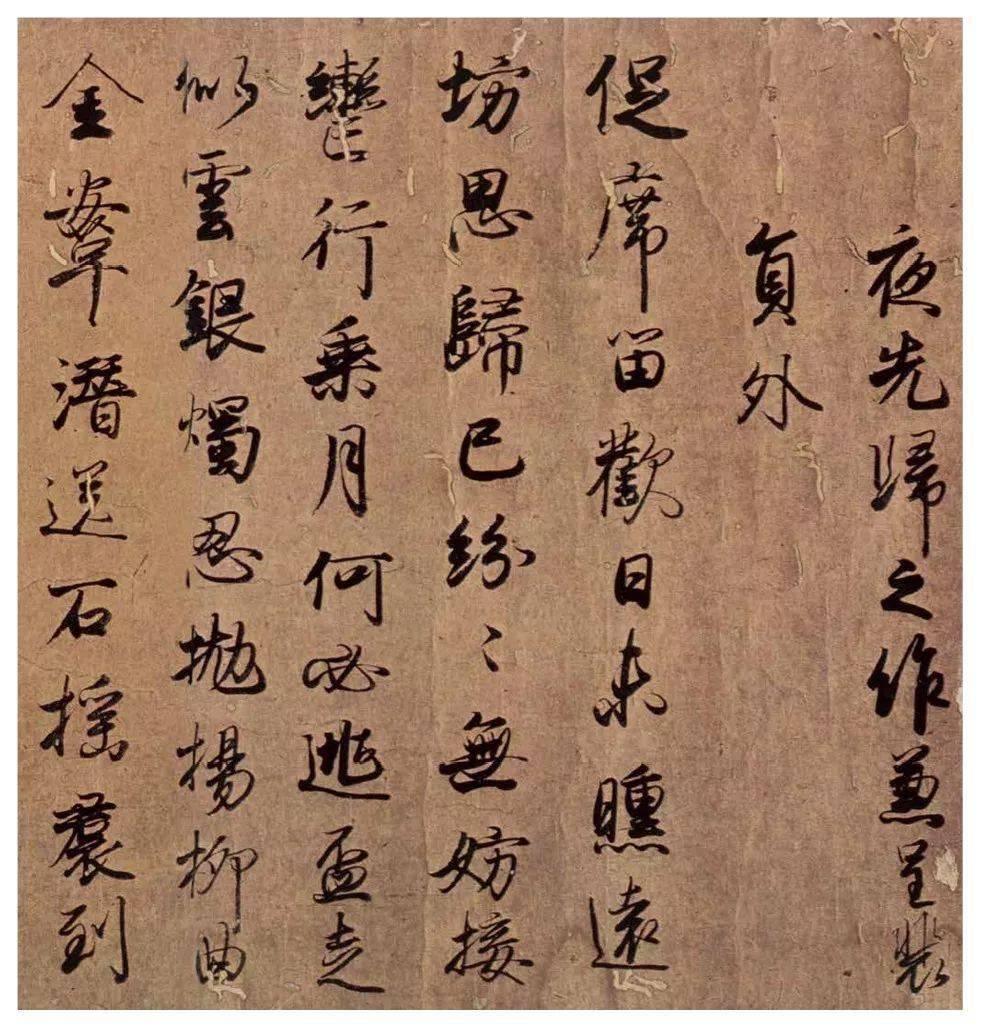 夜先歸之作兼呈裴
員外
促席留歡日未曛遠
坊思歸已紛〻無妨接
轡行乘月何必逃盃走
似雲銀燭忍拋楊柳曲
金鞍潛送石榴裙到